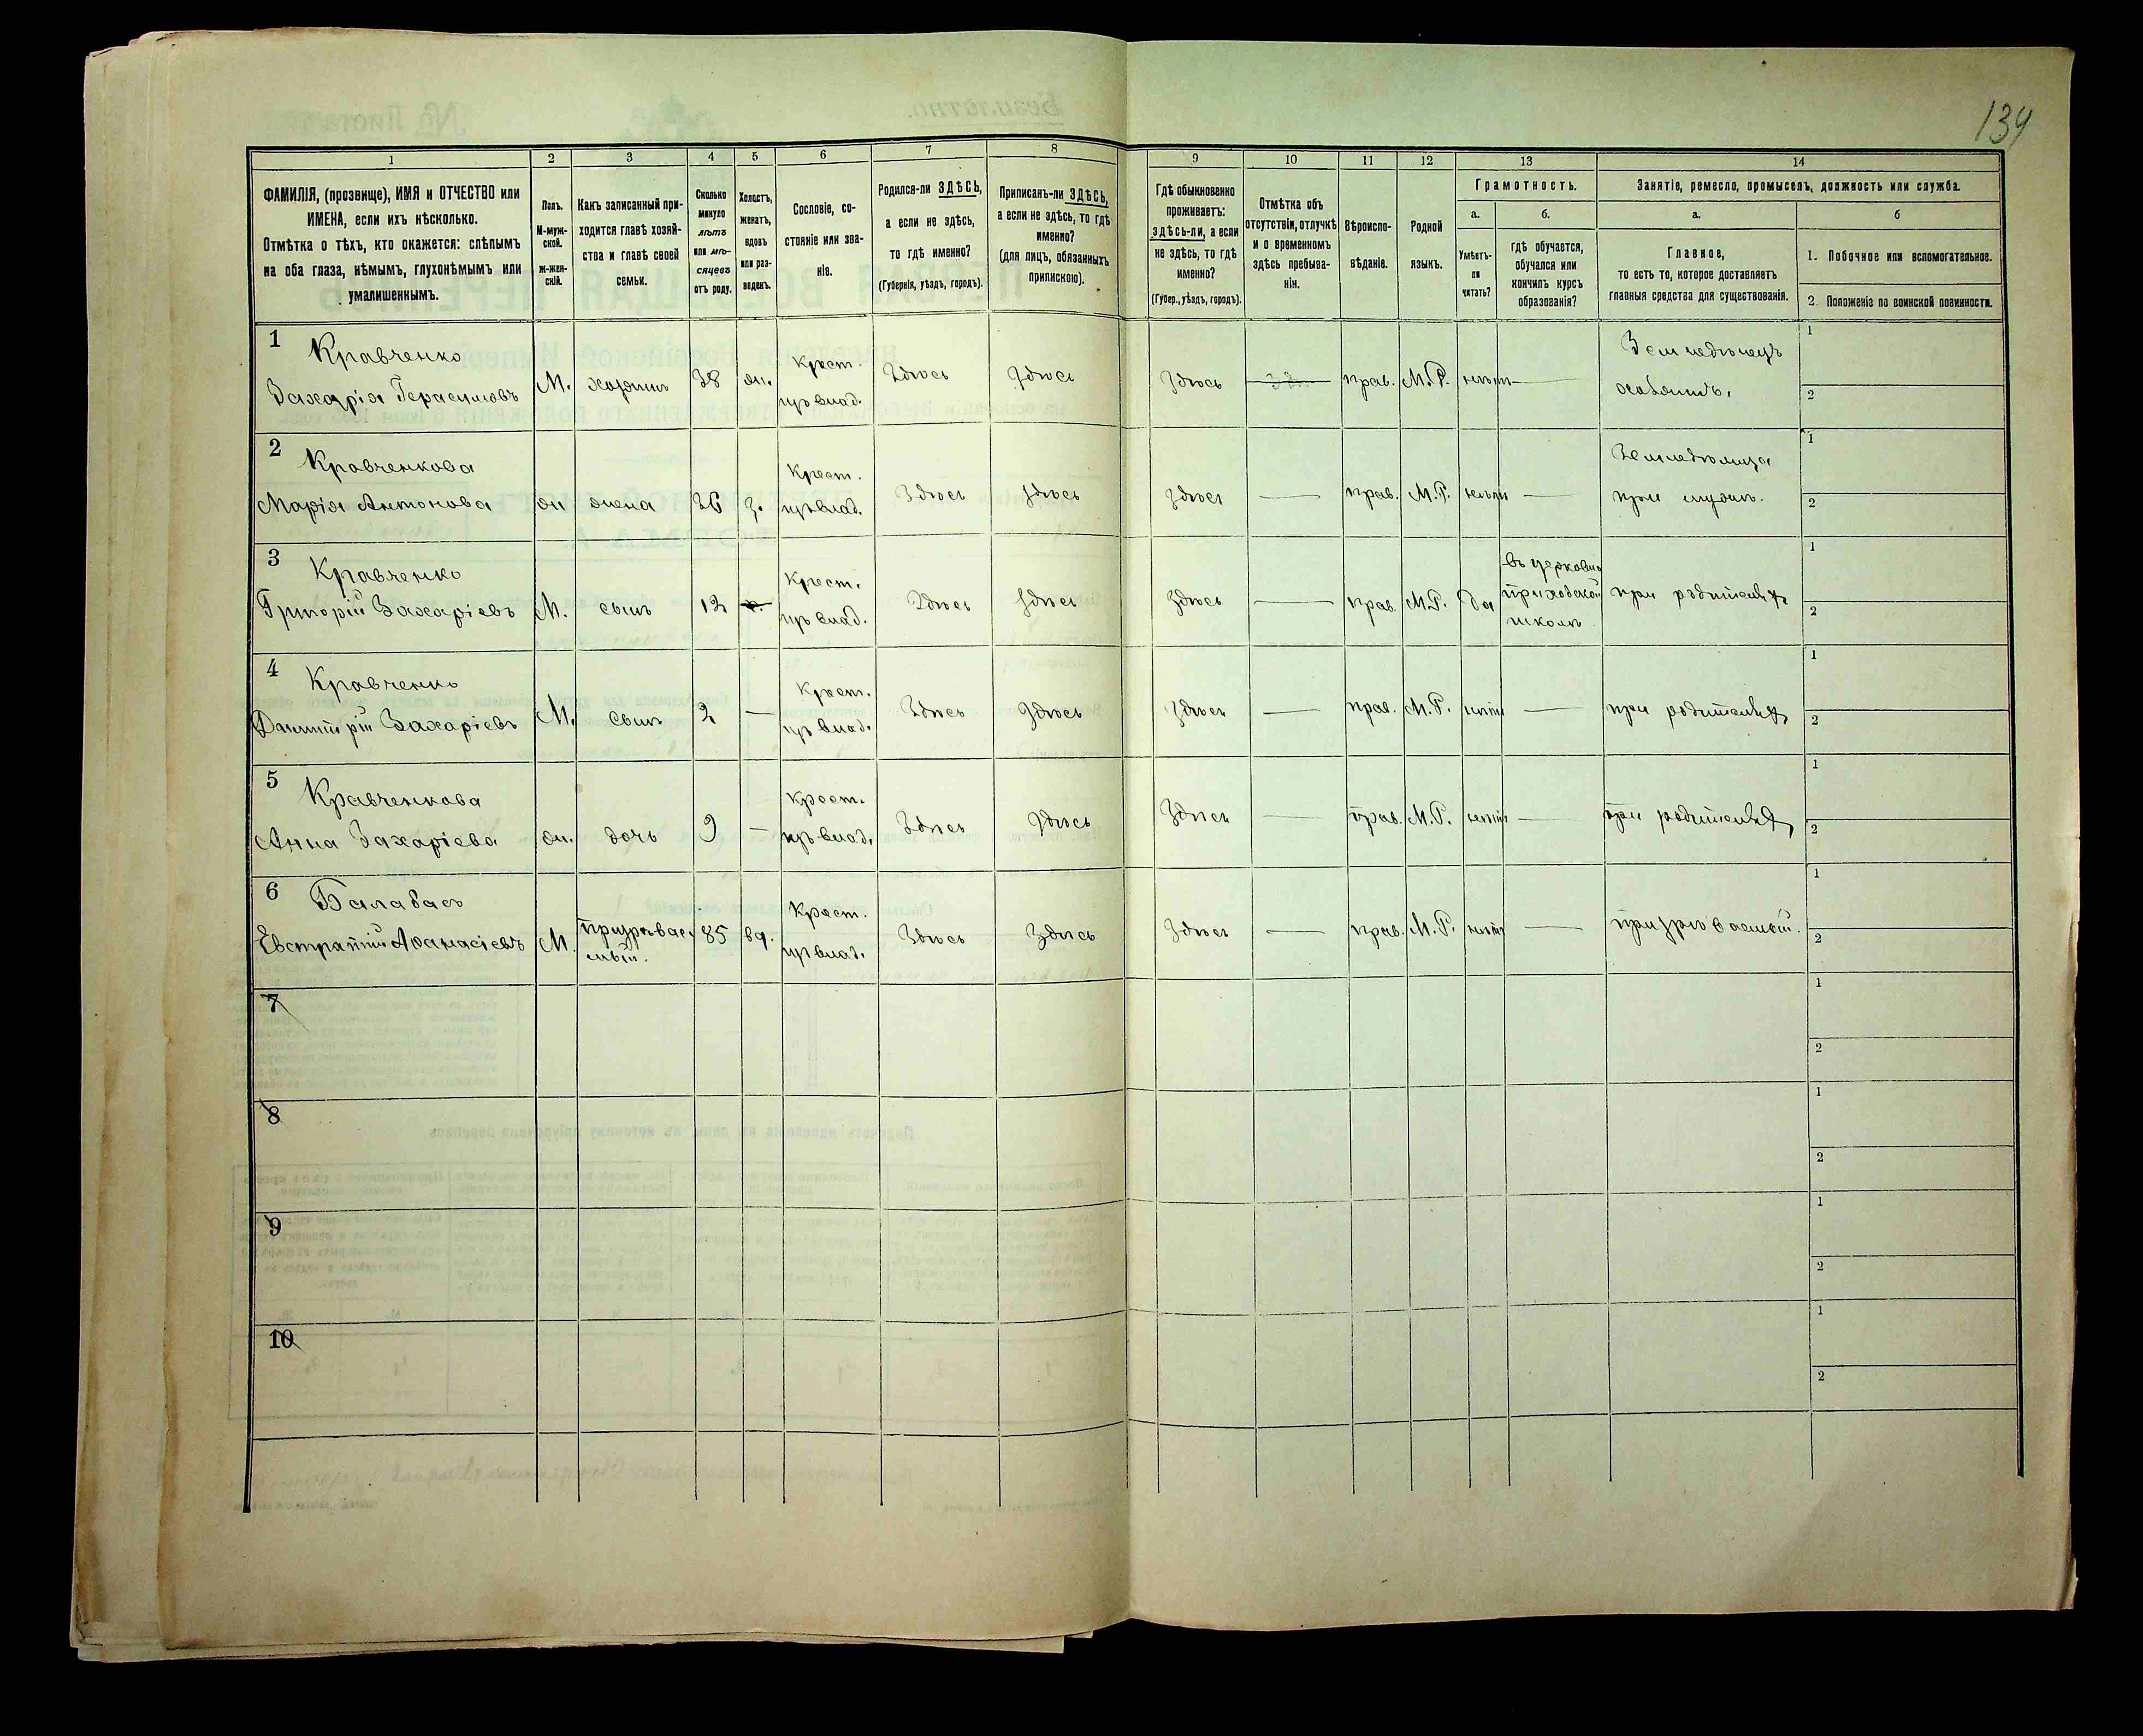 134
1 2 3 4 5 6 7 8 9 10 11 12 13 14
ФАМИЛІЯ, (прозвище), ИМЯ и ОТЧЕСТВО или
ИМЕНА, если ихъ нѣсколько.
Отмѣтка о тѣхъ, кто окажется: слѣпымъ
на оба глаза, нѣмымъ, глухонѣмымъ или
умалишеннымъ.
Полъ.
М-муж-
ской.
ж-жен-
скій.
Какъ записанный при-
ходится главѣ хозяй-
ства и главѣ своей
семьи.
Сколько
минуло
лѣтъ
или мѣ-
сяцевъ
отъ роду.
Холостъ,
женатъ,
вдовъ
или раз-
веденъ.
Сословіе, со-
стояніе или зва-
ніе.
Родился-ли ЗДѢСЬ,
а если не здѣсь,
то гдѣ именно?
(Губернія, уѣздъ, городъ).
Приписанъ-ли ЗДѢСЬ,
а если не здѣсь, то гдѣ
именно?
(для лицъ, обязанныхъ
припискою).
Гдѣ обыкновенно
проживаетъ:
здѣсь-ли, а если
не здѣсь, то гдѣ
именно?
(Губер., уѣздъ, городъ).
Отмѣтка объ
отсутствіи, отлучкѣ
и о временномъ
здѣсь пребыва-
ніи.
Вѣроиспо-
вѣданіе.
Родной
языкъ.
Грамотность.
а.
Умѣетъ-
ли
читать?
б.
гдѣ обучается,
обучался или
кончилъ курсъ
образованія?
Занятіе, ремесло, промыселъ, должность или служба.
а.
Главное,
то есть то, которое доставляетъ
главныя средства для существованія.
б
1. Побочное или вспомогательное.
2. Положеніе по воинской повинности.
1 Кравченко Крест. Земледѣлецъ 1
Захарія Герасимовъ М. хозяинъ 38 жн. из влад. Здѣсь Здѣсь Здѣсь прав. М.Р. нѣтъ — хозяинъ. 2
2 Кравченкова Крест. Земледѣлица 1
Марія Антонова ж жена 36 з. из влад. Здѣсь Здѣсь Здѣсь — прав. М.Р. нѣтъ — при мужѣ. 2
3 Кравченко Крест. въ церковно 1
Григорій Захаріевъ М. сынъ 12 из влад. Здѣсь Здѣсь Здѣсь — прав. М.Р. да приходской при родителяхъ 2
школѣ
4 Кравченко Крест. 1
Димитрій Захаріевъ М. сынъ 2 — из влад. Здѣсь Здѣсь Здѣсь — прав. М.Р. нѣтъ — при родителяхъ 2
5 Кравченкова Крест. 1
Анна Захаріева ж. дочь 9 — из влад. Здѣсь Здѣсь Здѣсь — прав. М.Р. нѣтъ — при родителяхъ 2
6 Балабасъ Крест. 1
Евстратій Аѳанасіевъ М. призрѣвае- 85 вд. из влад. Здѣсь Здѣсь Здѣсь — прав. М.Р. нѣтъ — призрѣваемый. 2
мый.
7 1
2
8 1
2
9 1
2
10 1
2